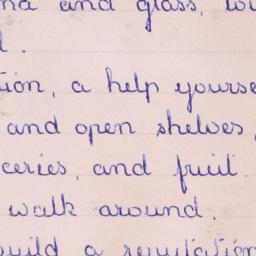 and glass,
tion, a help yourse
and open shelves,
ceries, and fruit
walk around.
build a reputation